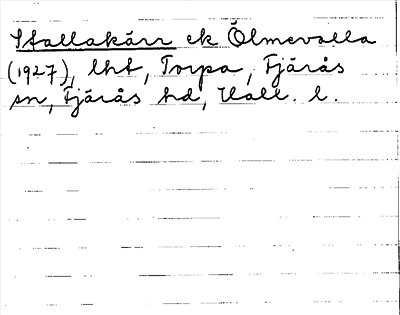 Stallakärr ek Ölmevalla
(1927), lht, Torpa, Fjärås
sn, Fjärås hd, Hall. l.